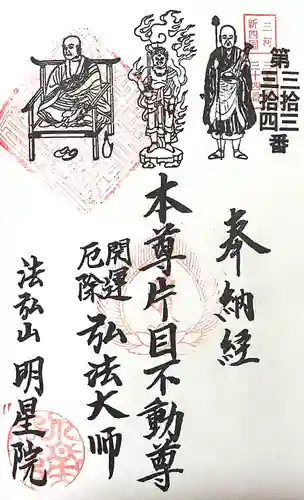 三河
新四国
三十四
第三拾三
三拾四番
奉納経
本尊片目不動尊
開運
厄除
弘法大師
法弘山
明星院